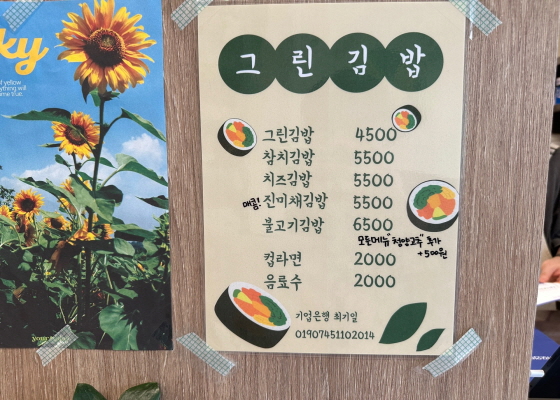 ky
그린김밥
그린김밥 4500
참치김밥 5500
치즈김밥 5500
매콤! 진미채김밥 5500
불고기김밥 6500
모든메뉴 "청양고추" 추가
+500원
컵라면 2000
음료수 2000
기업은행 최기일
01907451102014